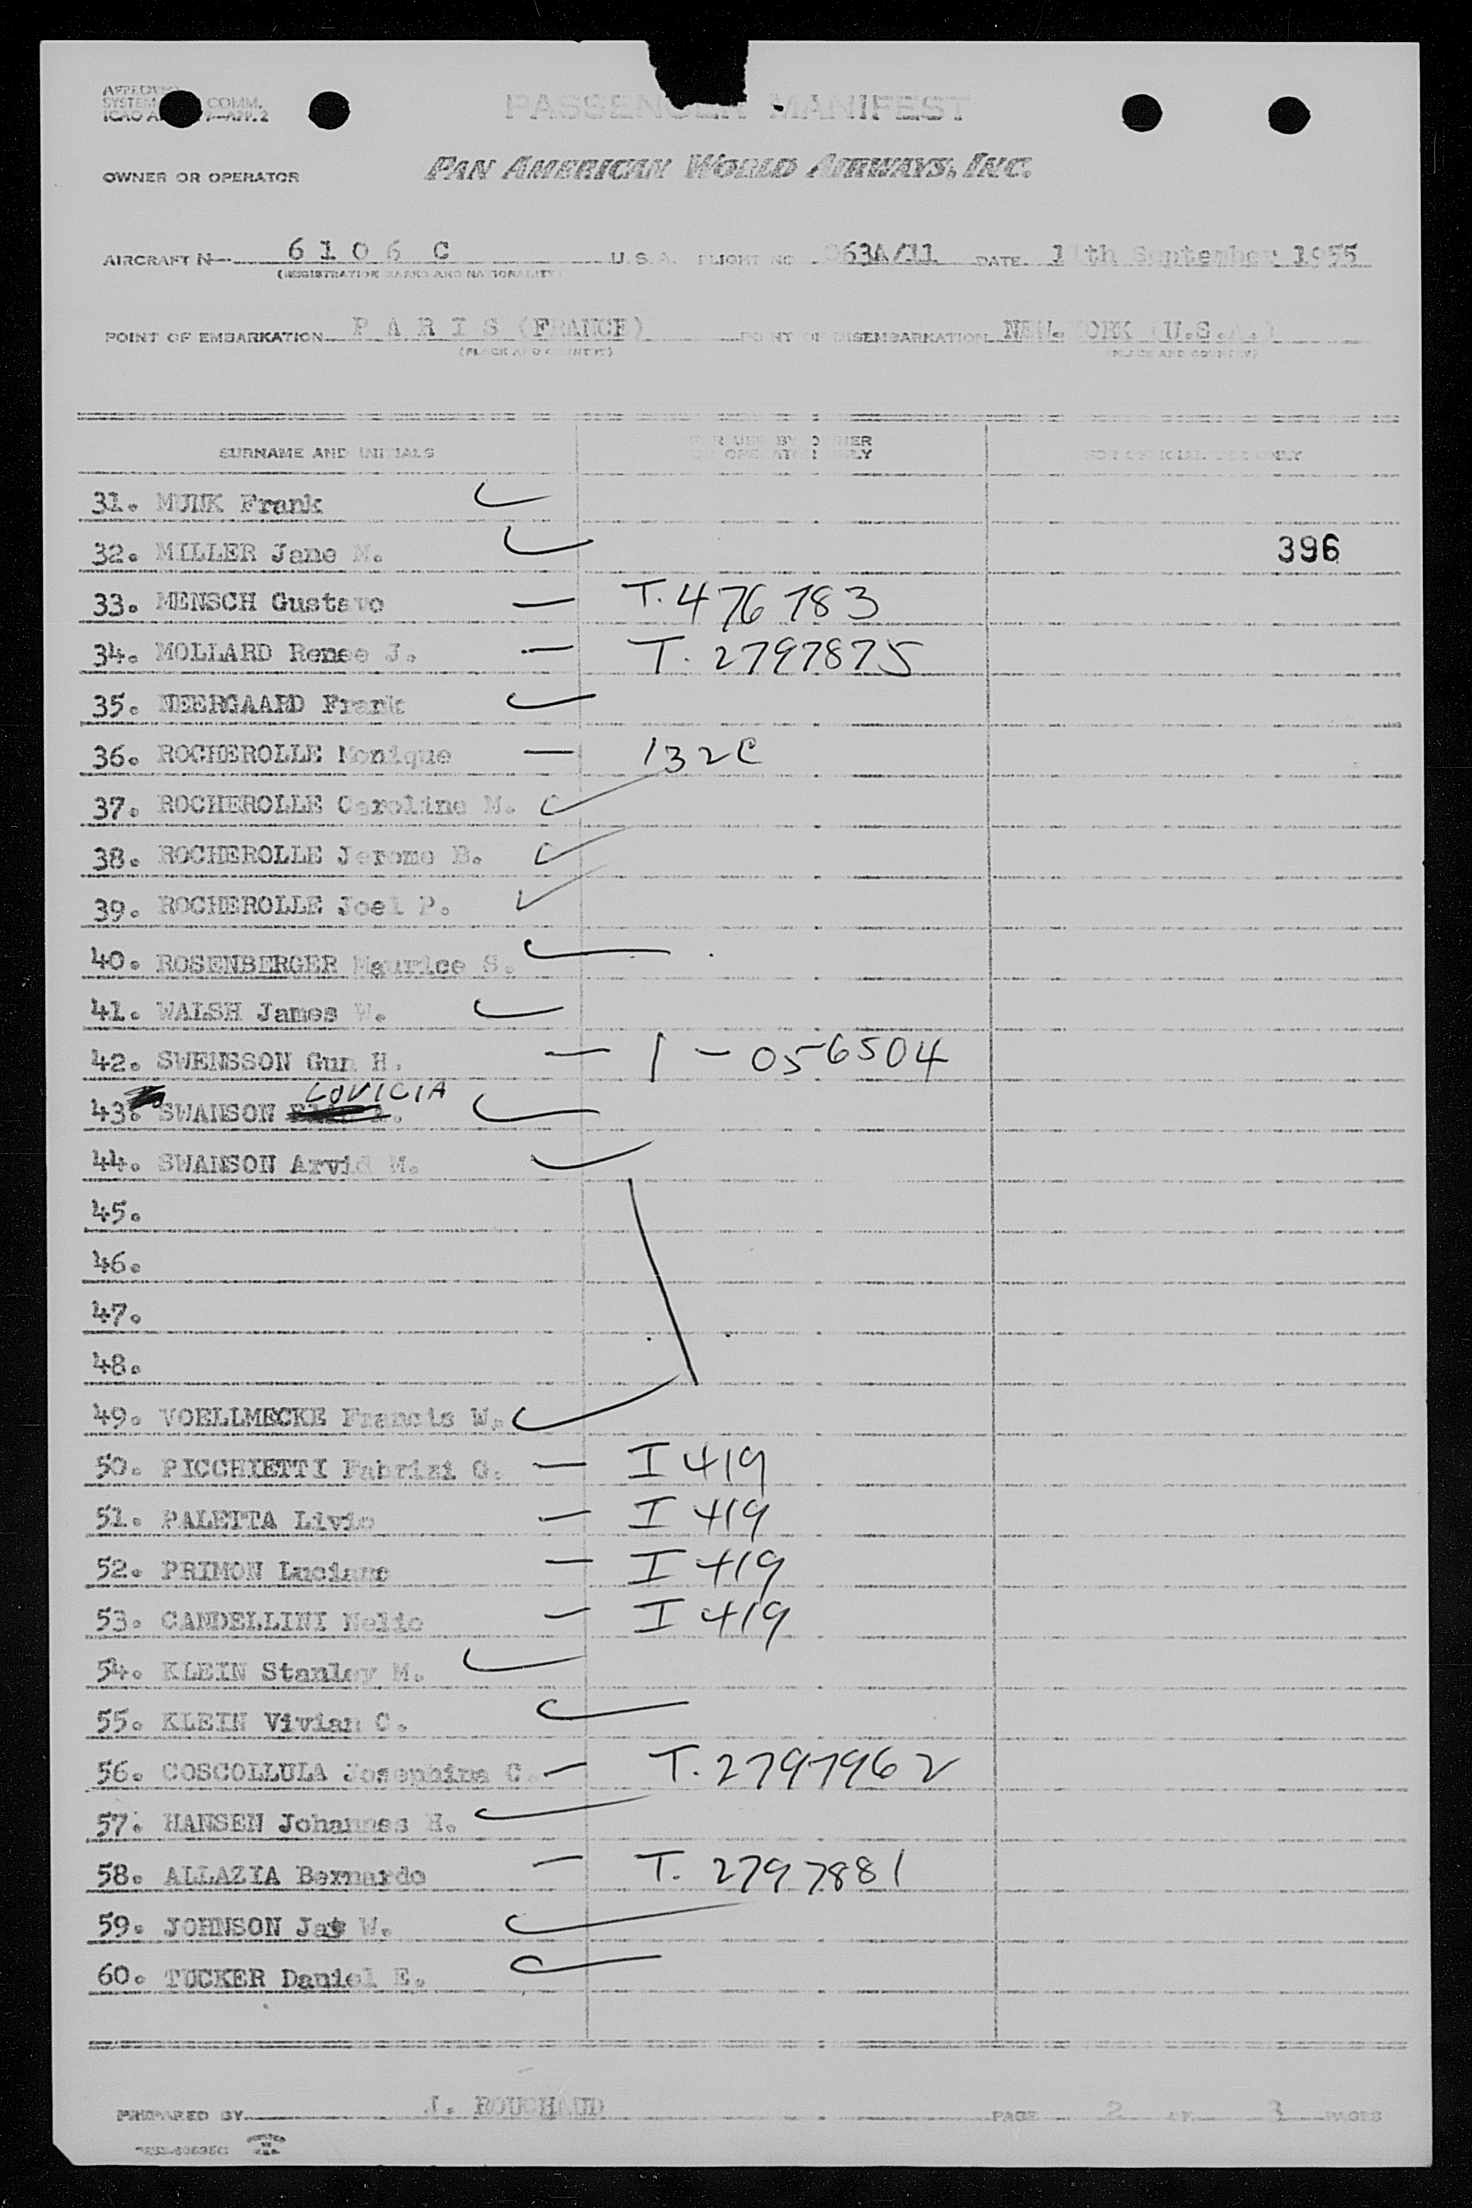 SYSTEM COMM.
PASSENGER MANIFEST
OWNER OR OPERATOR PAN AMERICAN WORLD AIRWAYS, INC.
AIRCRAFT N 6106 C U.S.A. FLIGHT NO 063A/11 DATE th September 1955
(REGISTRATION MARKS AND NATIONALITY)
POINT OF EMBARKATION P A R I S (FRANCE) POINT OF DISEMBARKATION NEW YORK (U.S.A.)
(PLACE AND COUNTRY) (PLACE AND COUNTRY)
SURNAME AND INITIALS FOR USE BY OWNER OR OPERATOR ONLY FOR OFFICIAL USE ONLY
31. MUNK Frank
32. MILLER Jane M. 396
33. MENSCH Gustavo — T. 476783
34. MOLLARD Renee J. — T. 2797875
35. NEERGAARD Frank
36. ROCHEROLLE Monique — 132C
37. ROCHEROLLE Caroline M.
38. ROCHEROLLE Jerome B.
39. ROCHEROLLE Joel P.
40. ROSENBERGER Maurice S.
41. WALSH James W.
42. SWENSSON Gun H. — 1-056504
43. SWANSON LOVICIA
44. SWANSON Arvid M.
45.
46.
47.
48.
49. VOELLMECKE Francis W.
50. PICCHIETTI Fabrizi G. — I 419
51. PALETTA Livio — I 419
52. PRIMON Luciano — I 419
53. CANDELLINI Nelio — I 419
54. KLEIN Stanley M.
55. KLEIN Vivian C.
56. COSCOLLULA Josephina C. — T. 2797962
57. HANSEN Johannes H.
58. ALLAZIA Bernardo — T. 2797881
59. JOHNSON Jay W.
60. TUCKER Daniel E.
PREPARED BY J. ROUCHAUD PAGE 2 OF 3 PAGES